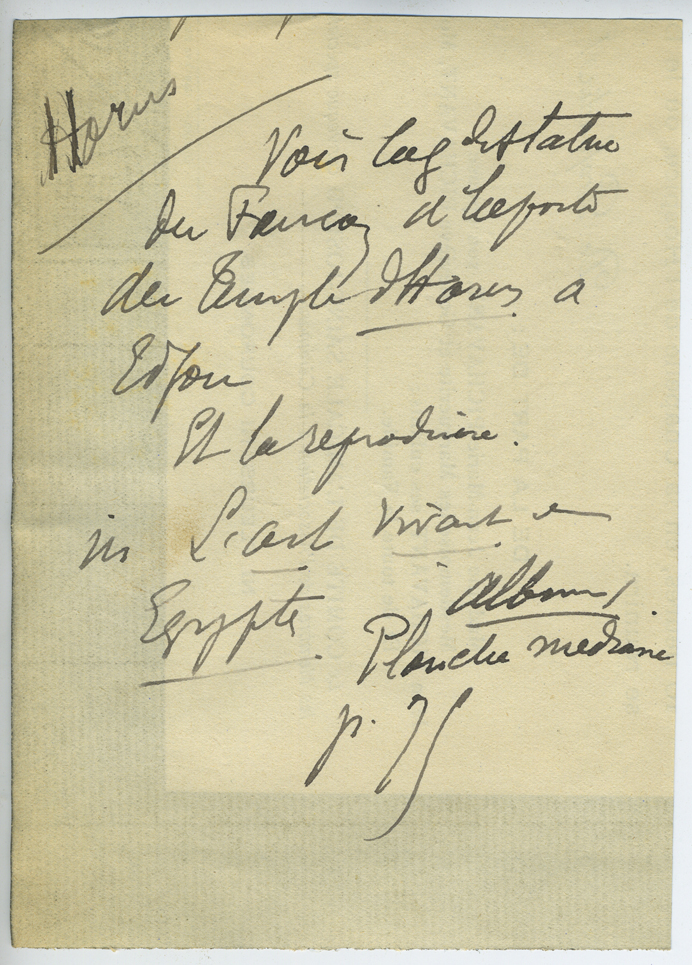 Horus
Voir la g de statue
du Faucon à la porte
du Temple d'Horus a
Edfou
Et la reproduire.
in L'art vivant en
Egypte album,
Planche mediane
p.